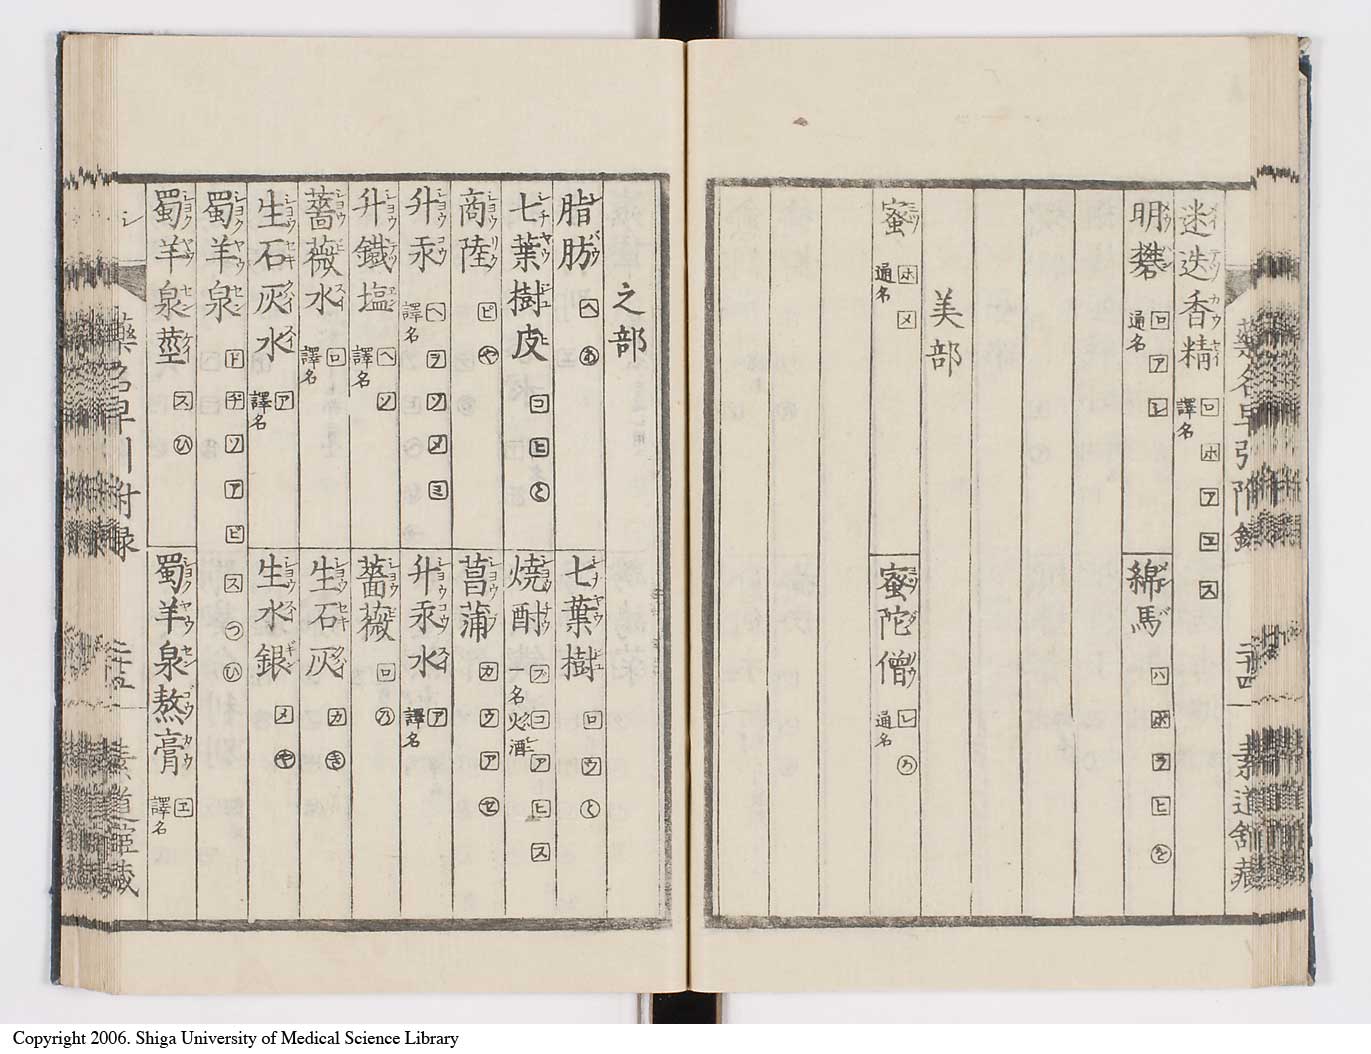 迷迭香精 ロ ホ ア ヱ ス 譯名
明礬 ロ ア レ 通名
綿馬 ハ ホ ヲ ヒ
美部
蜜 ホ メ 通名
蜜陀僧 レ 通名
藥名早引附錄 二十四 素道舘藏
之部
脂肪 ヘ あ
七葉樹 ロ ウ と
七葉樹皮 コ ヒ と
焼酎 フ コ ア ヒ ス 一名火酒
商陸 ピ や
菖蒲 カ ウ ア せ
升汞 ヘ ヲ ソ メ ミ 譯名
升汞水 ア 譯名
升鐵塩 ヘ ソ 譯名
薔薇 ロ ろ
薔薇水 ロ 譯名
生石灰 カ き
生石灰水 ア 譯名
生水銀 メ や
蜀羊泉 ド チ ソ ア ピ ス つ ひ
蜀羊泉莖 ス ひ
蜀羊泉熬膏 エ 譯名
シ
Copyright 2006. Shiga University of Medical Science Library